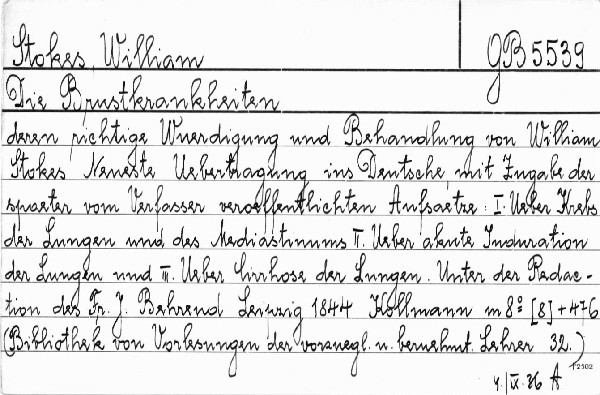 Stokes, William GB 5539
Die Brustkrankheiten
deren richtige Wuerdigung und Behandlung von William
Stokes Neueste Uebertragung ins Deutsche mit Zugabe der
spaeter vom Verfasser veroeffentlichten Aufsaetze: I. Ueber Krebs
der Lungen und des Mediastinums II. Ueber akute Induration
der Lungen und III. Ueber Cirrhose der Lungen. Unter der Redac-
tion des Fr. J. Behrend Leipzig 1844 Kollmann in 8º [8]+476
(Bibliothek von Vorlesungen der vorzuegl. u. beruehmt. Lehrer 32.)
12502
4/IX. 36 A